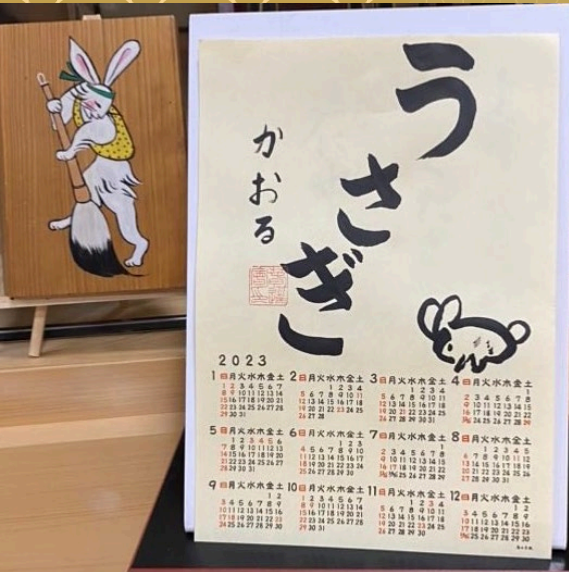 うさぎ
かおる
2023
1 日月火水木金土
1 2 3 4 5 6 7
8 9 10 11 12 13 14
15 16 17 18 19 20 21
22 23 24 25 26 27 28
29 30 31
2 日月火水木金土
1 2 3 4
5 6 7 8 9 10 11
12 13 14 15 16 17 18
19 20 21 22 23 24 25
26 27 28
3 日月火水木金土
1 2 3 4
5 6 7 8 9 10 11
12 13 14 15 16 17 18
19 20 21 22 23 24 25
26 27 28 29 30 31
4 日月火水木金土
1
2 3 4 5 6 7 8
9 10 11 12 13 14 15
16 17 18 19 20 21 22
24 25 26 27 28 29
5 日月火水木金土
1 2 3 4 5 6
7 8 9 10 11 12 13
14 15 16 17 18 19 20
21 22 23 24 25 26 27
28 29 30 31
6 日月火水木金土
1 2 3
4 5 6 7 8 9 10
11 12 13 14 15 16 17
18 19 20 21 22 23 24
25 26 27 28 29 30
7 日月火水木金土
1
2 3 4 5 6 7 8
9 10 11 12 13 14 15
16 17 18 19 20 21 22
24 25 26 27 28 29
8 日月火水木金土
1 2 3 4 5
6 7 8 9 10 11 12
13 14 15 16 17 18 19
20 21 22 23 24 25 26
27 28 29 30 31
9 日月火水木金土
1 2
3 4 5 6 7 8 9
10 11 12 13 14 15 16
17 18 19 20 21 22 23
24 25 26 27 28 29 30
10 日月火水木金土
1 2 3 4 5 6 7
8 9 10 11 12 13 14
15 16 17 18 19 20 21
22 23 24 25 26 27 28
29 30 31
11 日月火水木金土
1 2 3 4
5 6 7 8 9 10 11
12 13 14 15 16 17 18
19 20 21 22 23 24 25
26 27 28 29 30
12 日月火水木金土
1 2
3 4 5 6 7 8 9
10 11 12 13 14 15 16
18 19 20 21 22 23
25 26 27 28 29 30